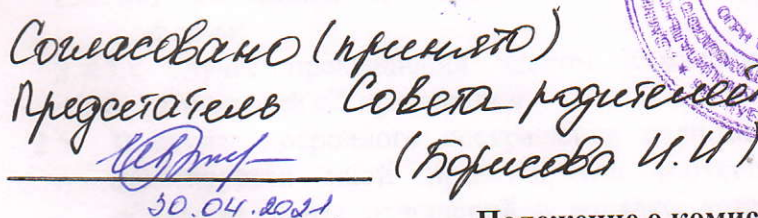 Согласовано (принято)
Председатель Совета родителей
(Борисова И.И)
30.04.2021
Положение о комис